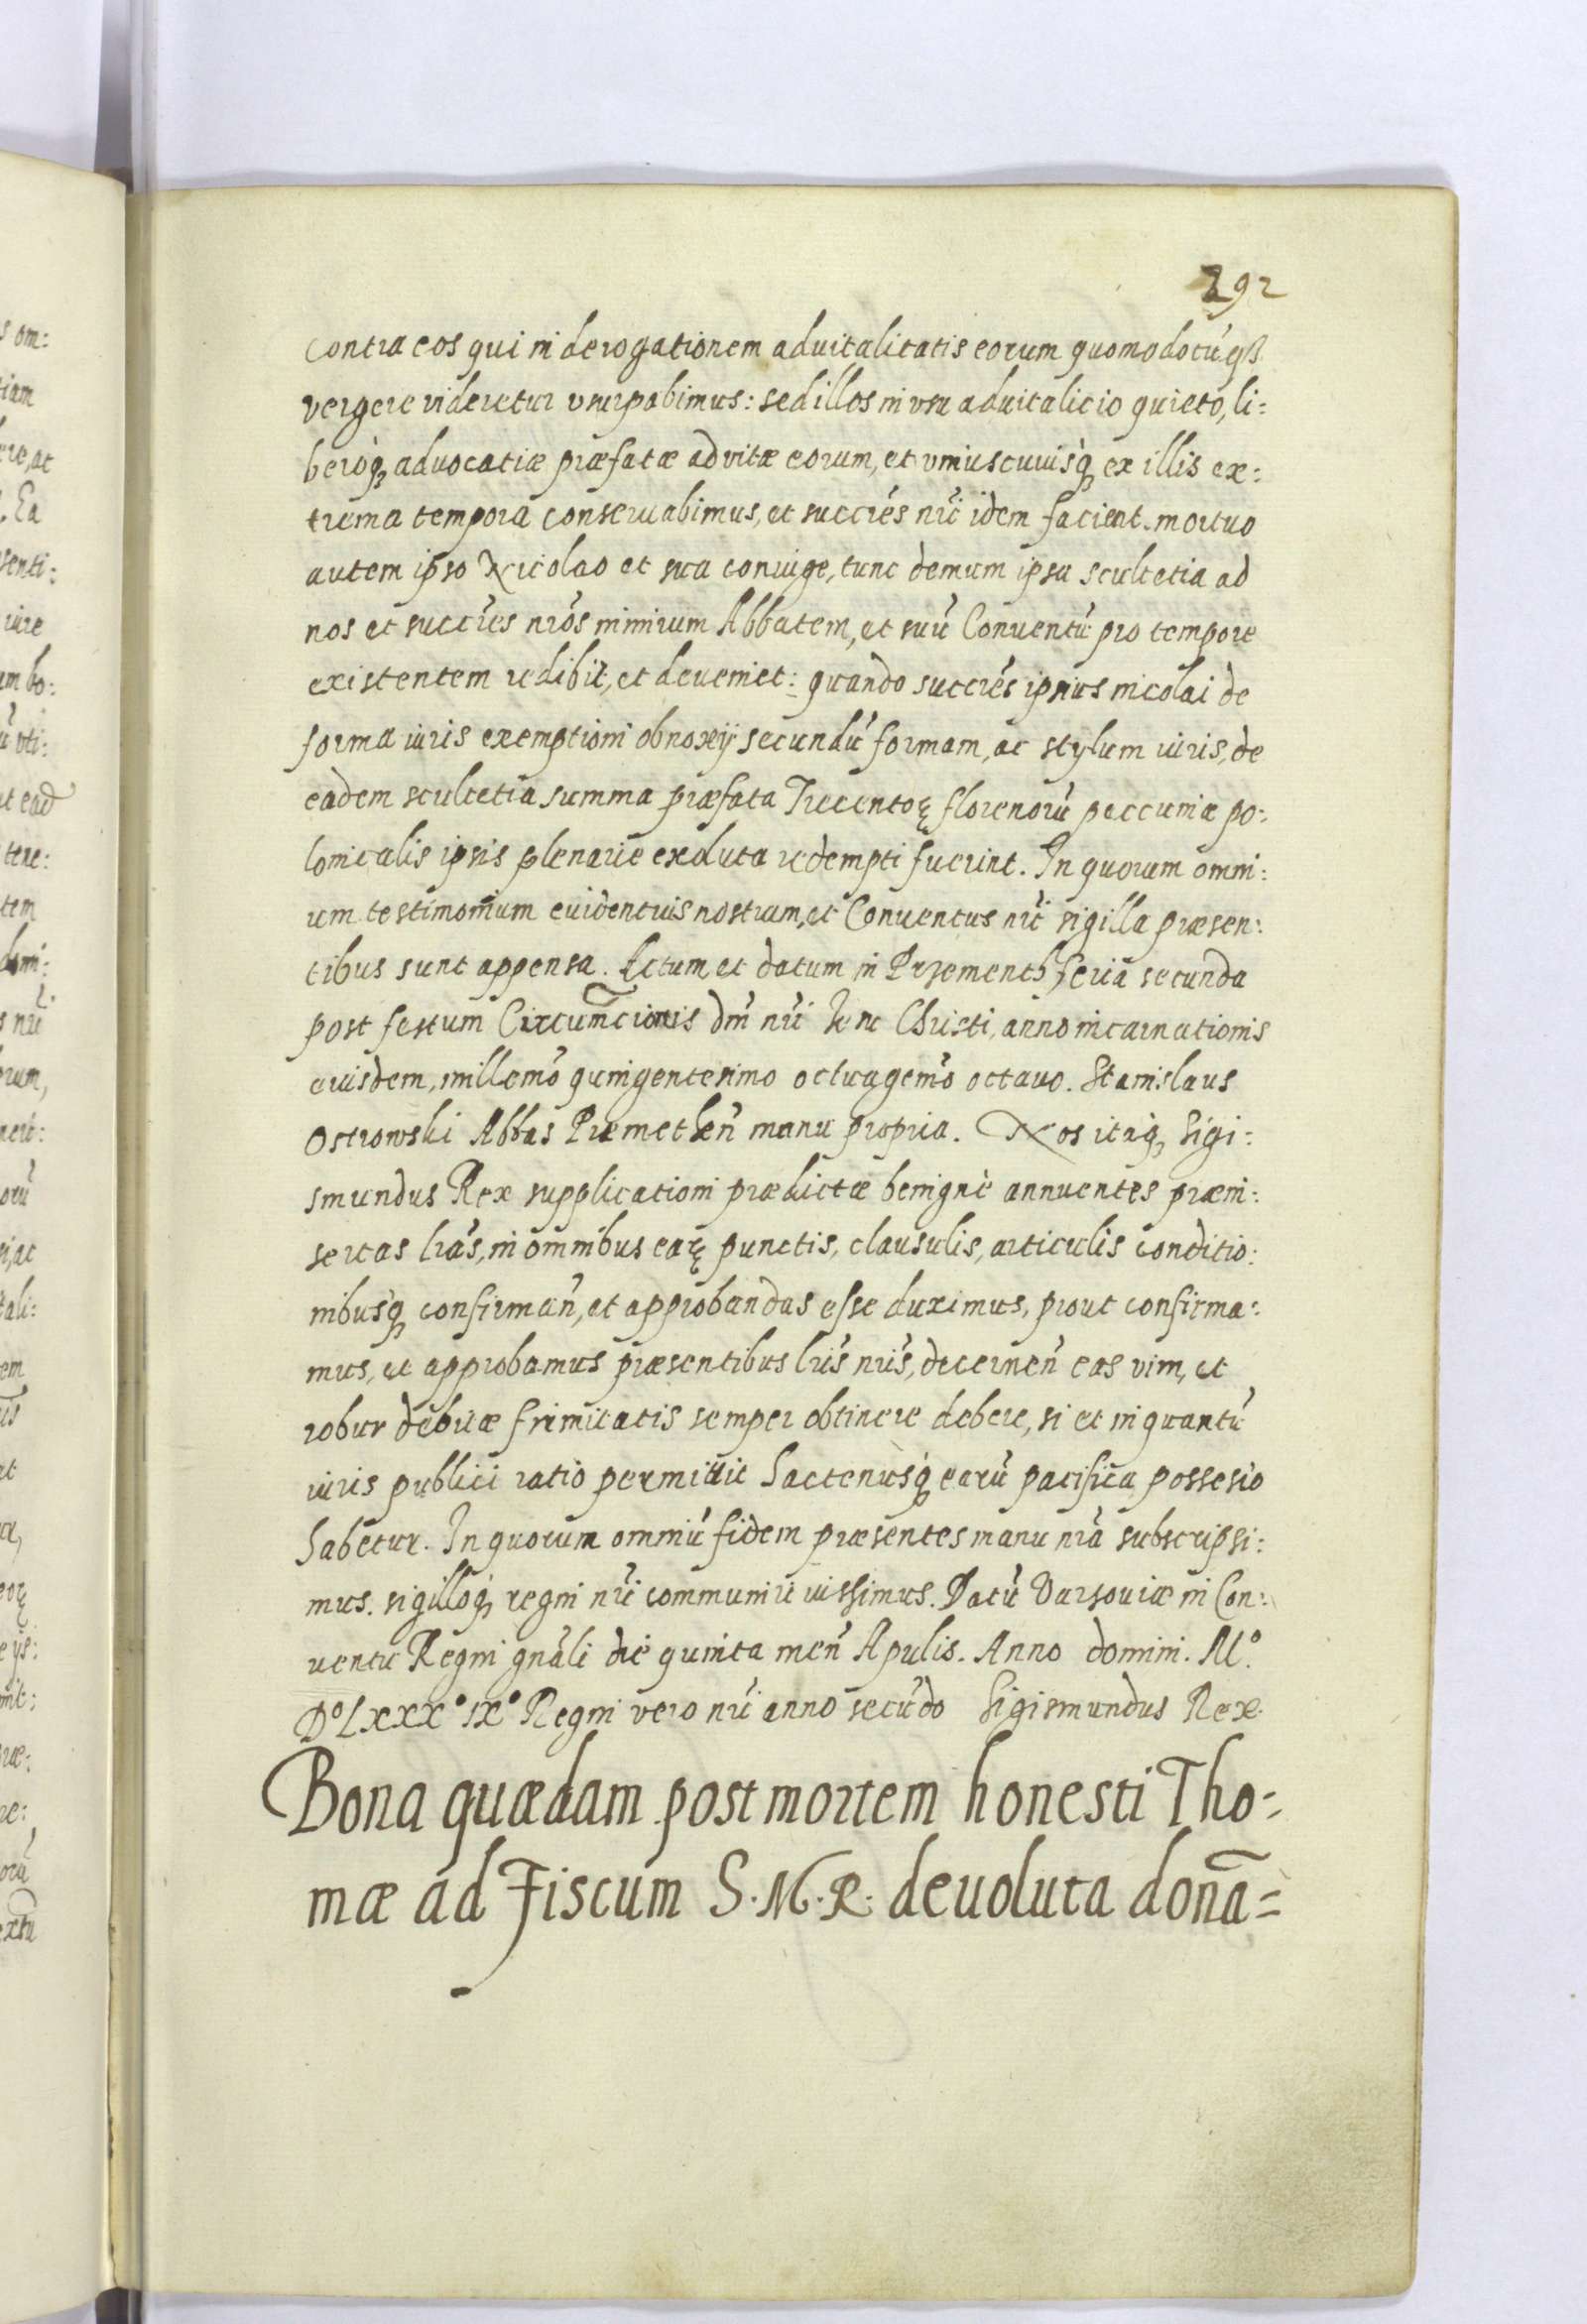 292
contra eos qui in derogationem aduitalitatis eorum quomodocũqȝ
vergere videretur vsurpabimus: sed illos in vsu aduitalicio quieto, li:
beroqȝ aduocatiæ præfatæ ad vitæ eorum, et vniuscuiusqȝ ex illis ex:
trema tempora conseruabimus, et succrẽs nri idem facient. mortuo
autem ipso Nicolao et sua coniuge, tunc demum ipsa scultetia ad
nos et succrẽs nrõs nimirum Abbatem, et suũ Conuentũ pro tempore
existentem redibit, et deueniet: quando succrẽs ipsius nicolai de
forma iuris exemptioni obnoxij secundũ formam, ac stylum iuris, de
eadem scultetia summa præfata Trecentoꝝ florenorũ peccuniæ po:
lonicalis ipsis plenarie exoluta redempti fuerint. In quorum omni:
um testimonium euidentius nostrum, et Conuentus nri sigilla præsen:
tibus sunt appensa. Actum et datum in Przementh feria secunda
post festum Circum̃cionis dñi nri Jesu Christi, anno incarnationis
eiusdem, millemõ quingentesimo octuagemõ octauo. Stanislaus
Ostrowski Abbas Premetheñ manu propria. Nos itaqȝ Sigi:
smundus Rex supplicationi prædictæ benignè annuentes præin:
sertas lrãs, in omnibus earꝝ punctis, clausulis, articulis conditio:
nibusqȝ confirmañ, et approbandas esse duximus, prout confirma:
mus, et approbamus præsentibus lrĩs nrĩs, decerneñ eas vim, et
robur debitæ frimitatis semper obtinere debere, si et in quantũ
iuris publici ratio permittit hactenusqȝ earũ pacifica possesio
habetur. In quorum omniũ fidem præsentes manu nrã subscripsi:
mus. sigilloqȝ regni nri communire iussimus. Datũ Varsouiæ in Con:
uentu Regni gnãli die quinta meñ Aprilis. Anno domini. Mº.
Dº Lxxxº ixº Regni vero nri anno secũdo Sigismundus Rex.
Bona quædam post mortem honesti Tho=
mæ ad Fiscum S. M. R. deuoluta donã=